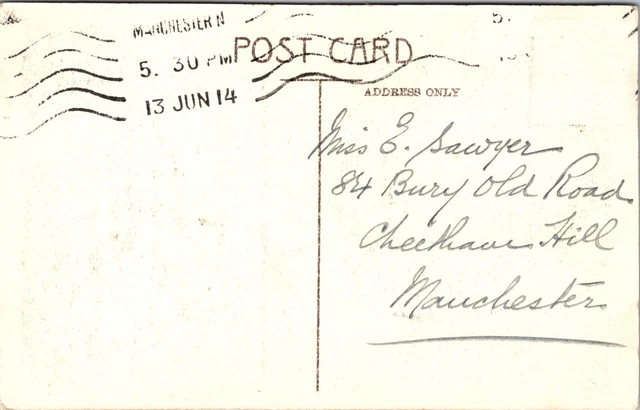 MANCHESTER N
5. 30 PM
13 JUN 14
5.
POST CARD
ADDRESS ONLY
Miss E. Sawyer
84 Bury Old Road
Cheetham Hill
Manchester